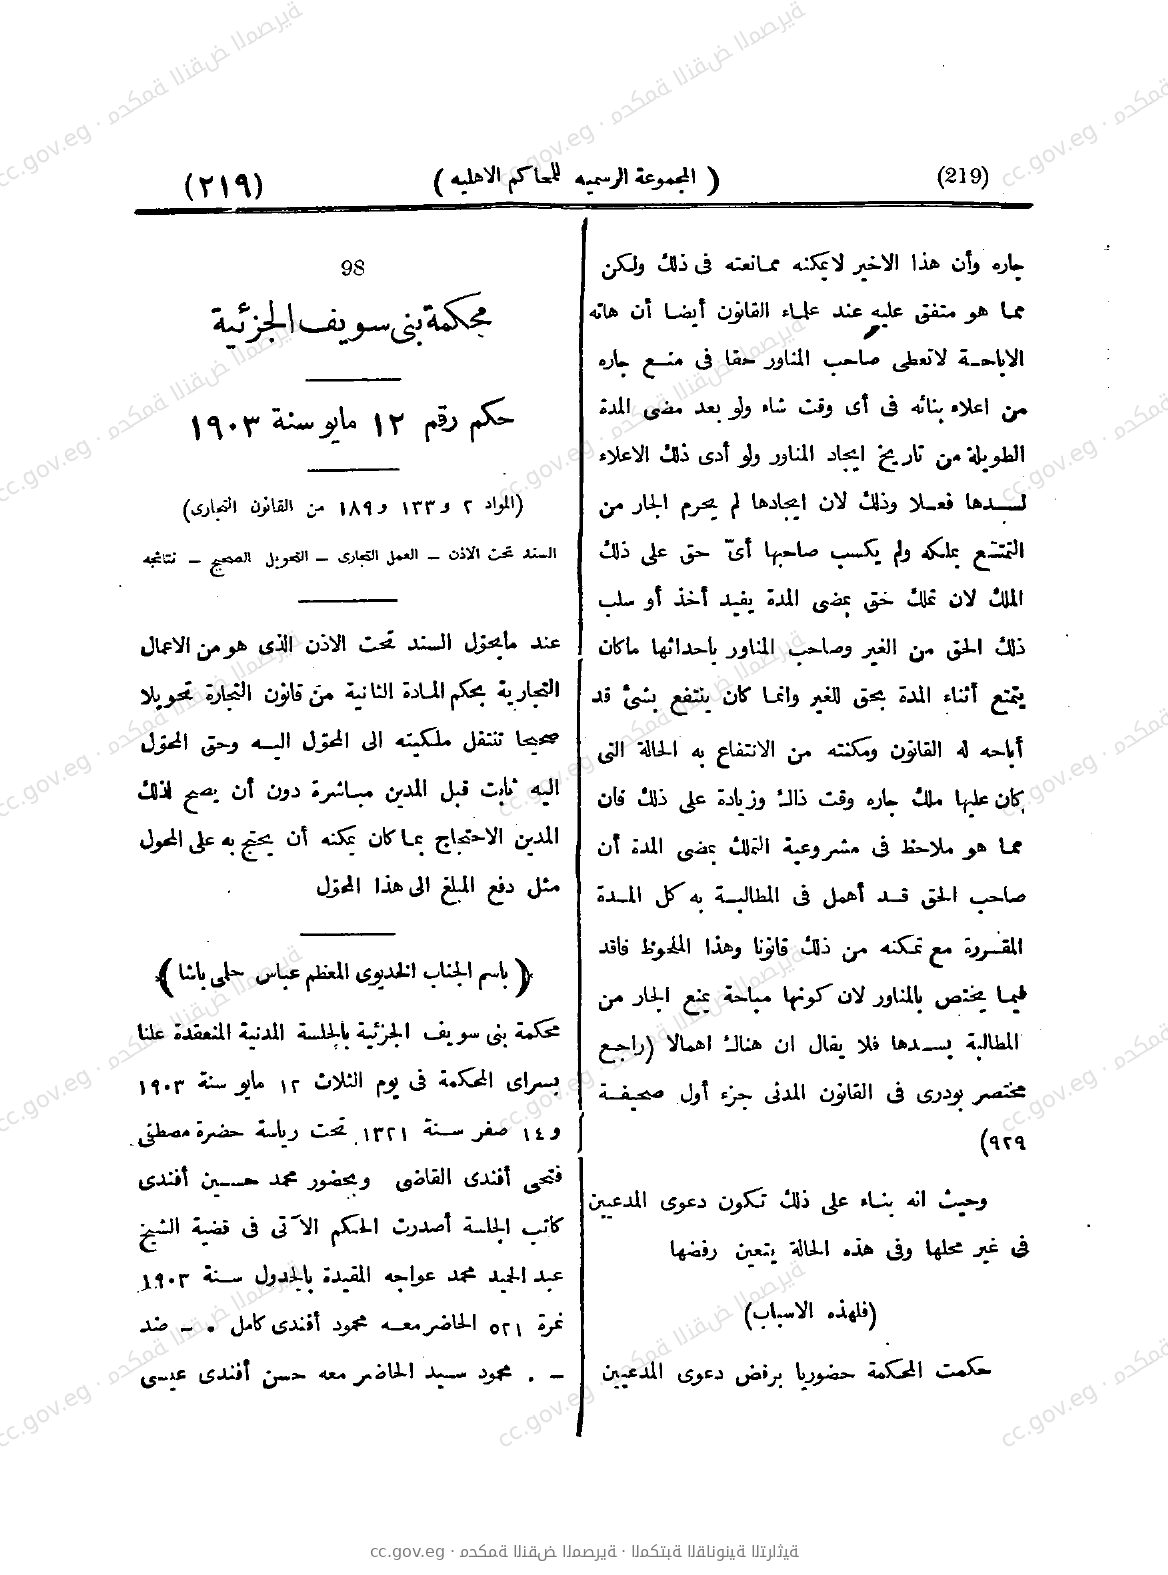 (219)
( المجموعة الرسميه للمحاكم الاهليه )
(٢١٩)
جاره وأن هذا الاخير لا يمكنه ممانعته فى ذلك ولكن
مما هو متفق عليه عند علماء القانون أيضا أن هاته
الاباحة لا تعطى صاحب المناور حقا فى منع جاره
من اعلاء بنائه فى أى وقت شاء ولو بعد مضى المدة
الطويلة من تاريخ ايجاد المناور ولو أدى ذلك الاعلاء
لسدها فعلا وذلك لان ايجادها لم يحرم الجار من
التمتع بملكه ولم يكسب صاحبها أىّ حق على ذلك
الملك لان تملك حق بمضى المدة يفيد أخذ أو سلب
ذلك الحق من الغير وصاحب المناور باحداثها ما كان
يتمتع أثناء المدة بحق للغير وانما كان ينتفع بشئ قد
أباحه له القانون ومكنته من الانتفاع به الحالة التى
كان عليها ملك جاره وقت ذاك وزيادة على ذلك فان
مما هو ملاحظ فى مشروعية التملك بمضى المدة أن
صاحب الحق قد أهمل فى المطالبة به كل المدة
المقررة مع تمكنه من ذلك قانونا وهذا الملحوظ فاقد
فيما يختص بالمناور لان كونها مباحة يمنع الجار من
المطالبة بسدها فلا يقال ان هناك اهمالا (راجع
مختصر بودرى فى القانون المدنى جزء أول صحيفة
٩٢٩)
وحيث انه بناء على ذلك تكون دعوى المدعيين
فى غير محلها وفى هذه الحالة يتعين رفضها
(فلهذه الاسباب)
حكمت المحكمة حضوريا برفض دعوى المدعيين
98
محكمة بنى سويف الجزئية
حكم رقم ١٢ مايو سنة ١٩٠٣
(المواد ٢ و ١٣٣ و ١٨٩ من القانون التجارى)
السند تحت الاذن – العمل التجارى – التحويل الصحيح – نتائجه
عند ما يحوّل السند تحت الاذن الذى هو من الاعمال
التجارية بحكم المادة الثانية من قانون التجارة تحويلا
صحيحا تنتقل ملكيته الى المحوّل اليه وحق المحوّل
اليه ثابت قبل المدين مباشرة دون أن يصح لذلك
المدين الاحتجاج بما كان يمكنه أن يحتج به على المحول
مثل دفع المبلغ الى هذا المحوّل
( باسم الجناب الخديوى المعظم عباس حلمى باشا )
محكمة بنى سويف الجزئية بالجلسة المدنية المنعقدة علنا
بسراى المحكمة فى يوم الثلاث ١٢ مايو سنة ١٩٠٣
و ١٤ صفر سنة ١٣٢١ تحت رياسة حضرة مصطفى
فتحى أفندى القاضى وبحضور محمد حسين أفندى
كاتب الجلسة أصدرت الحكم الآتى فى قضية الشيخ
عبد الحميد محمد عواجه المقيدة بالجدول سنة ١٩٠٣
نمرة ٥٢١ الحاضر معه محمود أفندى كامل . – ضد
– . محمود سيد الحاضر معه حسن أفندى عيسى
cc.gov.eg · محكمة النقض المصرية · المكتبة القانونية التراثية